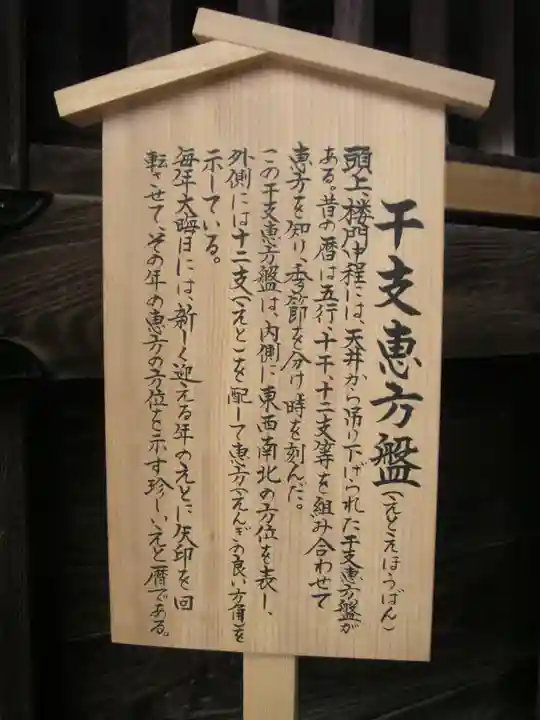 干支恵方盤(えとえほうばん)
頭上、楼門中程には、天井から吊り下げられた干支恵方盤が
ある。昔の暦は五行、十干、十二支等を組み合わせて
恵方を知り、季節を分け時を刻んだ。
この干支恵方盤は、内側に東西南北の方位を表し、
外側には十二支(えと)を配して恵方(えんぎの良い方角)を
示している。
毎年大晦日には、新しく迎える年のえとに矢印を回
転させて、その年の恵方の方位を示す珍しいえと暦である。